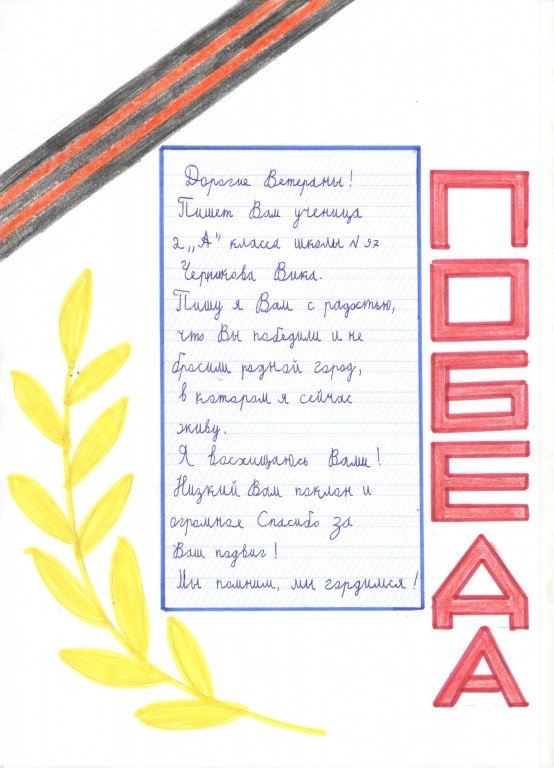 Дорогие Ветераны!
Пишет Вам ученица
2 „А" класса школы №97
Черникова Вика.
Пишу я Вам с радостью,
что Вы победили и не
бросили родной город,
в котором я сейчас
живу.
Я восхищаюсь Вами!
Низкий Вам поклон и
огромное Спасибо за
Ваш подвиг!
Мы помним, мы гордимся!
ПОБЕДА